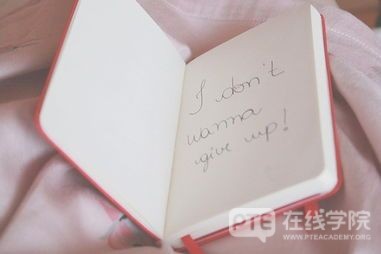 I don't
wanna
give up!
PTE在线学院
WWW.PTEACADEMY.ORG